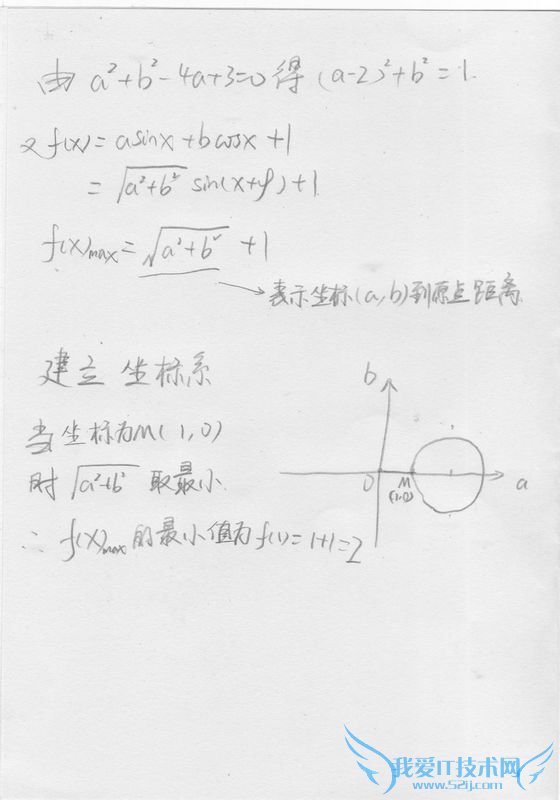 由 a²+b²-4a+3=0 得 (a-2)²+b²=1.
又 f(x)=asinx+bcosx+1
=√(a²+b²) sin(x+φ)+1
f(x)max=√(a²+b²) +1
→表示坐标(a,b)到原点距离
建立 坐标系
当坐标为M(1,0)
时 √(a²+b²) 取最小.
∴ f(x)max的最小值为f(1)=1+1=2
b
O
M
(1,0)
a
我爱IT技术网
www.52ij.com